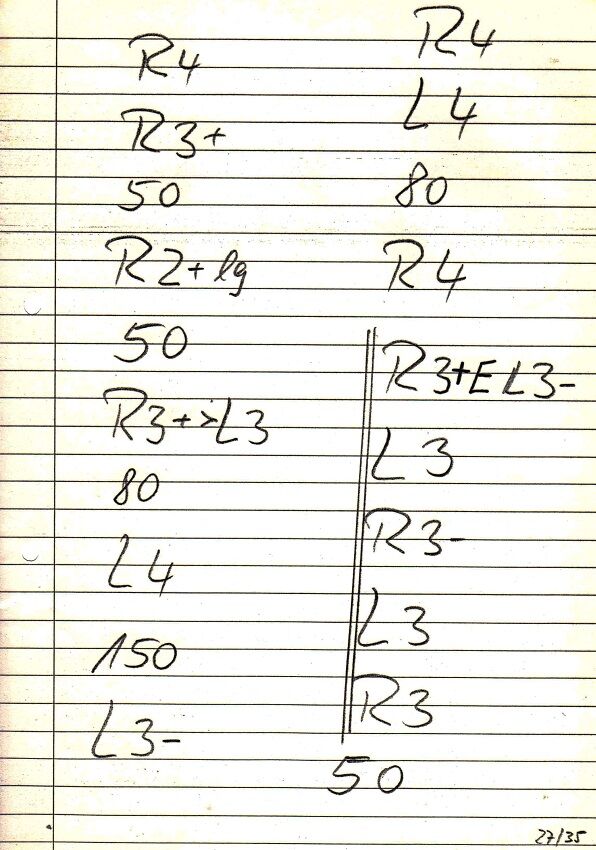 R4
R3+
50
R2+ lg
50
R3+>L3
80
L4
150
L3-
R4
L4
80
R4
R3+E L3-
L3
R3-
L3
R3
50
27/35